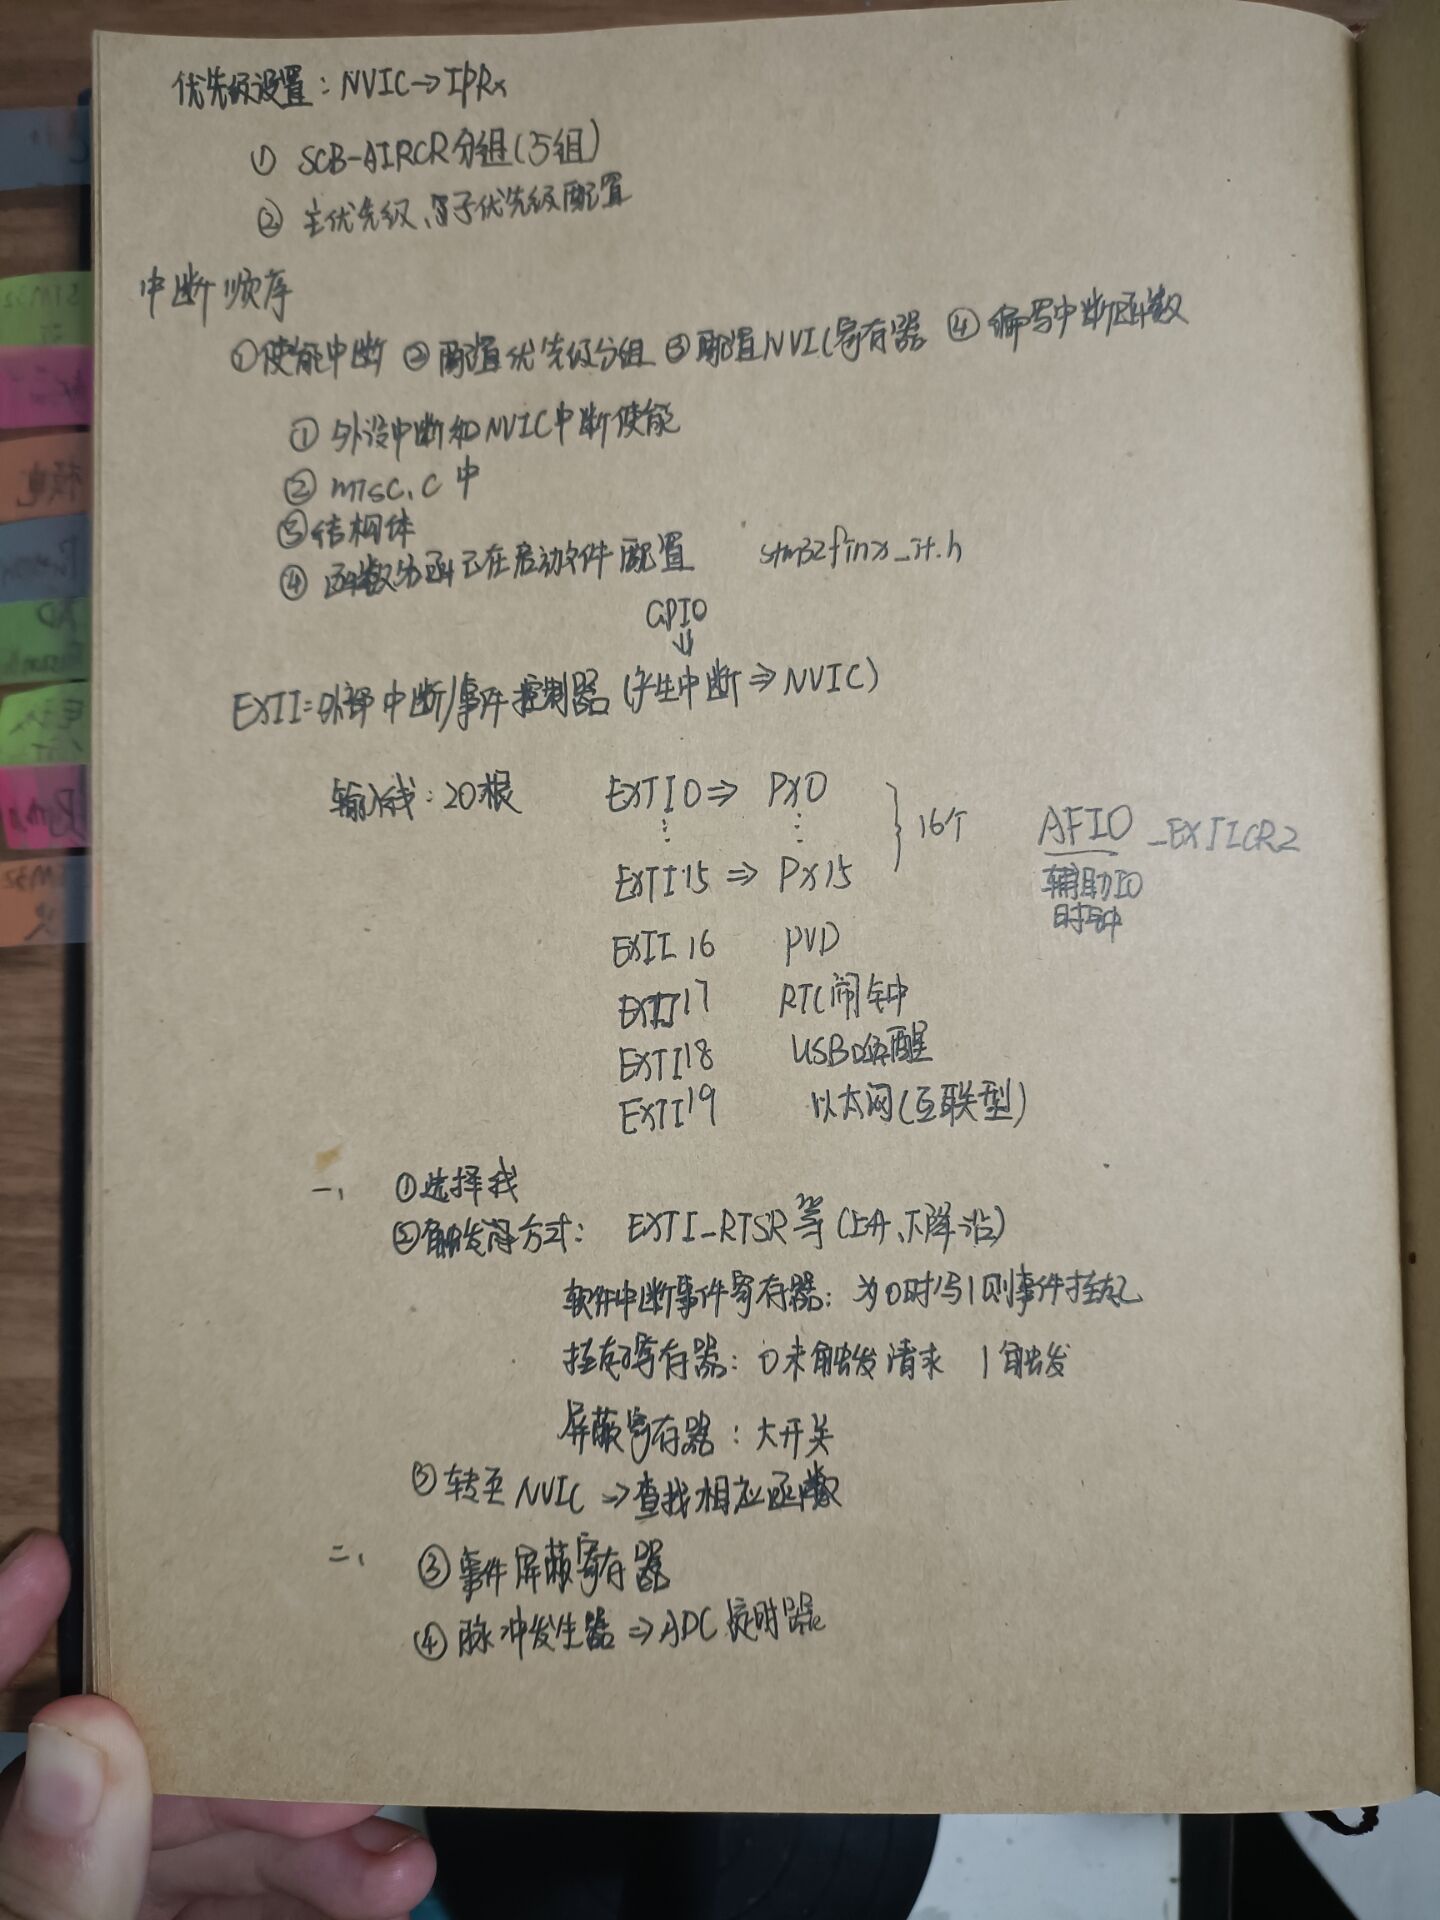 优先级设置：NVIC→IPRx
① SCB-AIRCR分组(5组)
② 主优先级、子优先级配置
中断顺序
①使能中断 ②配置优先级分组 ③配置NVIC寄存器 ④编写中断函数
① 外设中断和NVIC中断使能
② misc.c中
③结构体
④ 函数 已在启动文件配置 stm32f10x_it.h
GPIO
⇓
EXTI=外部中断/事件控制器(产生中断⇒NVIC)
输入线：20根 EXTI0⇒ Px0
⋮ ⋮ } 16个 AFIO_EXTICR2
EXTI15⇒ Px15 辅助IO
时钟
EXTI16 PVD
EXTI17 RTC闹钟
EXTI18 USB唤醒
EXTI19 以太网(互联型)
一、 ①选择线
②触发 方式： EXTI_RTSR等(上升、下降沿)
软件中断事件寄存器：为0时写1则事件挂起
挂起寄存器：0未触发请求 1触发
屏蔽寄存器：大开关
③转至NVIC→查找相应函数
二、 ③事件屏蔽寄存器
④脉冲发生器⇒ADC 定时器